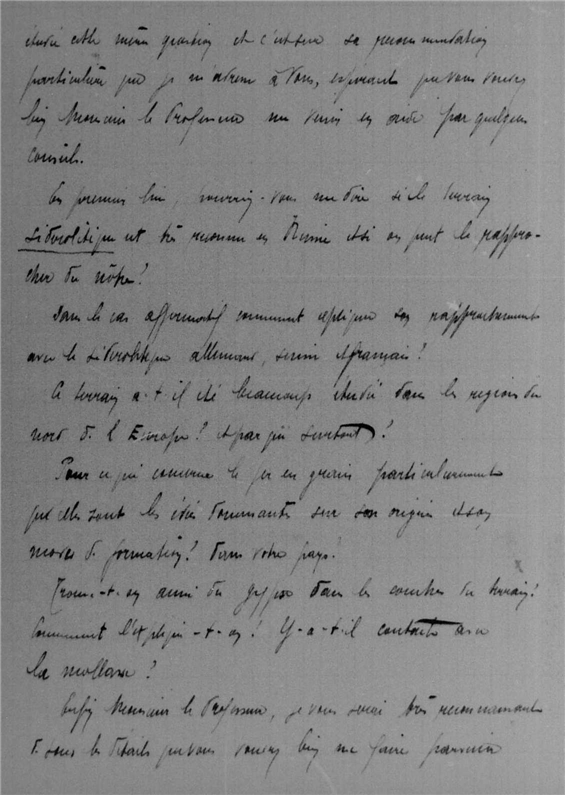 étudié cette même question et c'est sur sa recommandation
particulière que je m'adresse à Vous, espérant que vous voudrez
bien Monsieur le Professeur me venir en aide par quelques
conseils.
En premier lieu, pourriez-vous me dire si le terrain
Sidérolitique est très reconnu en Russie et si on peut le rappro-
cher du nôtre?
Dans le cas affirmatif comment explique son rapprochement
avec le sidérolitique allemand, suisse et français?
Ce terrain a-t-il été beaucoup étudié dans les régions du
nord de l'Europe? et par qui surtout?
Pour ce qui concerne le fer en grains particulièrement
quelles sont les idées dominantes sur son origine et son
mode de formation? dans votre pays?
Trouve-t-on aussi du gypse dans les couches du terrain?
Comment l'explique-t-on? Y-a-t-il contacts avec
la mollasse?
Enfin Monsieur le Professeur, je vous serai très reconnaissant
de tous les détails que vous voudrez bien me faire parvenir